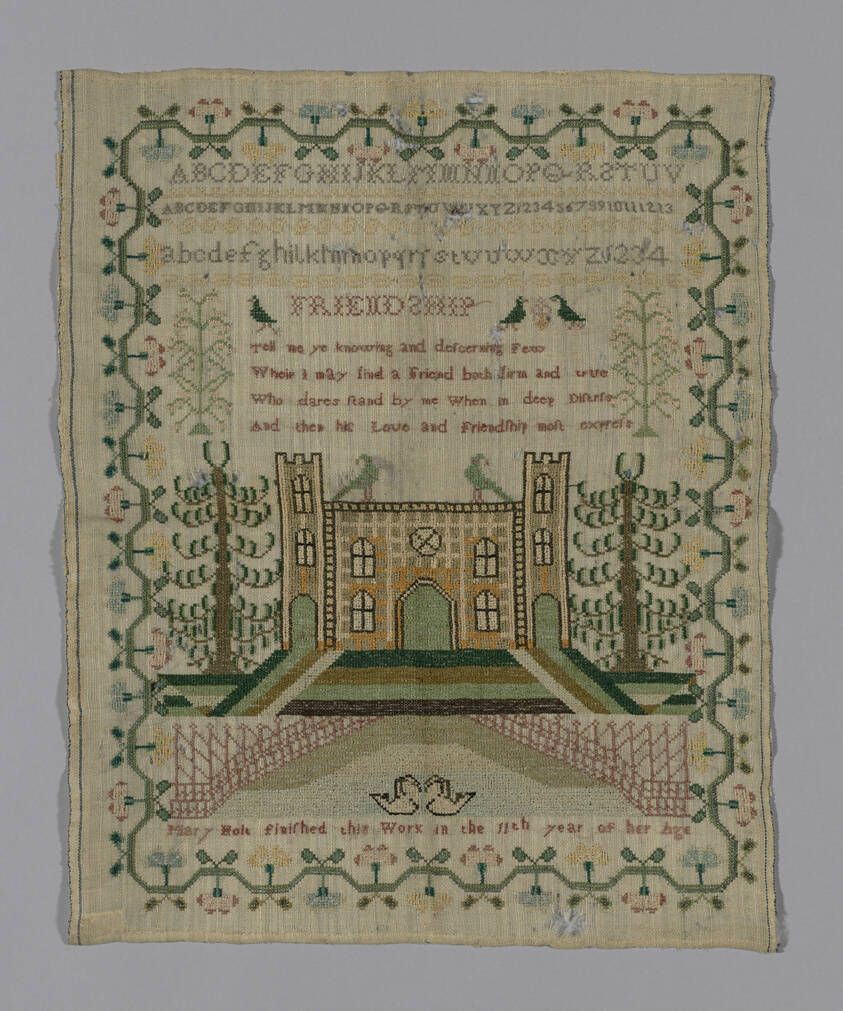 ABCDEFGHIJKLMNOPQRSTUV
ABCDEFGHIJKLMNOPQRSTUVWXYZ12345678910111213
abcdefghilklmnopqrſstuvwxyz1234
FRIENDSHIP
Tell me ye knowing and deſcerning Few
Wheir I may find a Friend both firm and true
Who dares ſtand by me When in deep Diſtreſs
And then his Love and Friendſhip moſt expreſs
Mary Holt finiſhed this Work in the 11th year of her Age